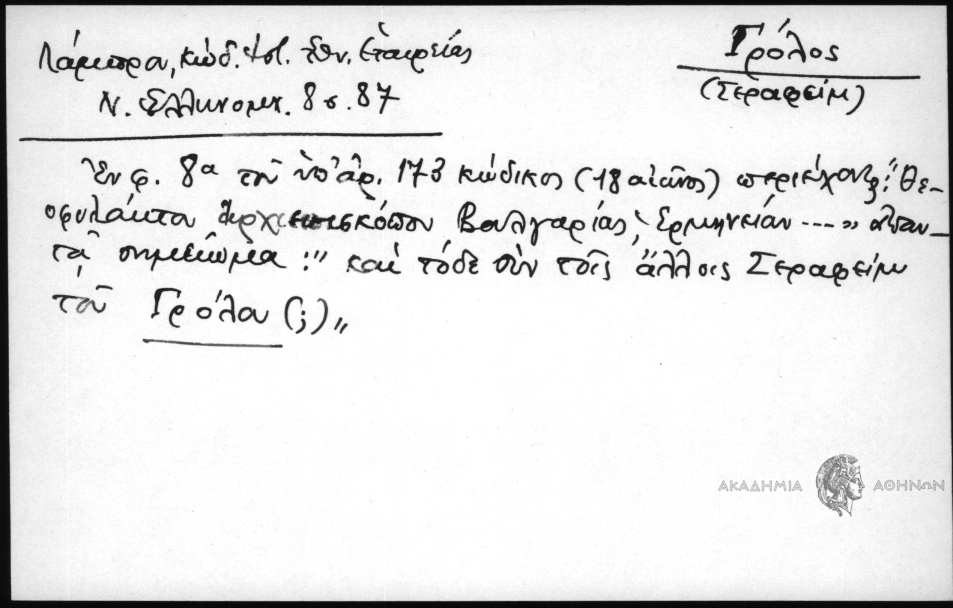 Λάμπρου, κώδ. Ἱστ. Ἐθν. Ἑταιρείας
Ν. Ἑλληνομν. 8 σ. 87
Γρόλος
(Σεραφείμ)
Ἐν φ. 8α τοῦ ὑπ' ἀρ. 173 κώδικος (18 αἰῶνος) περιέχοντος: "Θε-
οφυλάκτου ἀρχιεπισκόπου Βουλγαρίας, Ἑρμηνείαν ---" ἀπαν-
τᾷ σημείωμα: "καὶ τόδε σὺν τοῖς ἄλλοις Σεραφεὶμ
τοῦ Γρόλου (;)"
ΑΚΑΔΗΜΙΑ ΑΘΗΝΩΝ